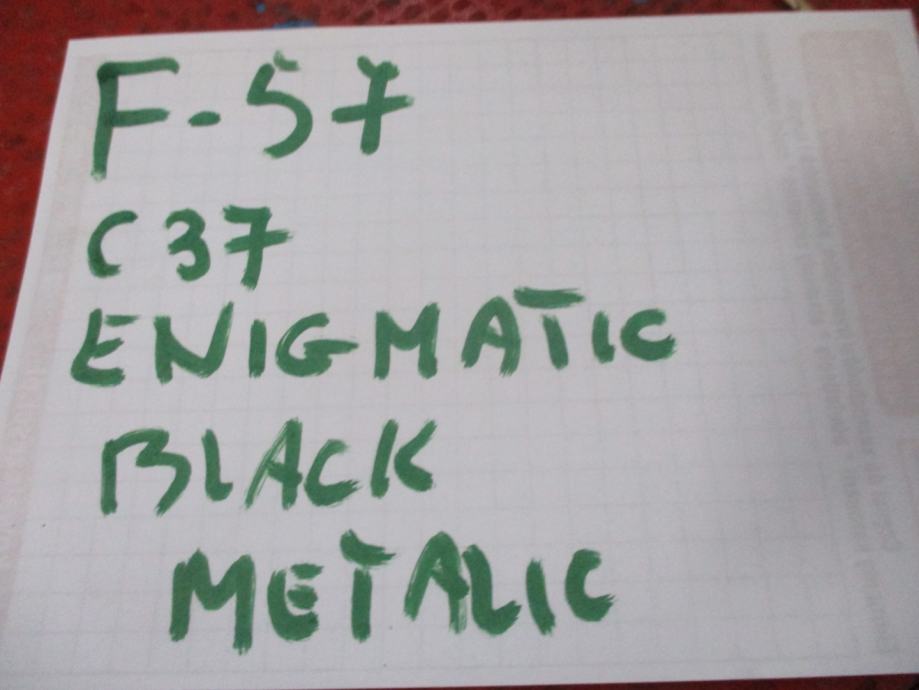 F-57
C37
ENIGMATIC
BLACK
METALIC